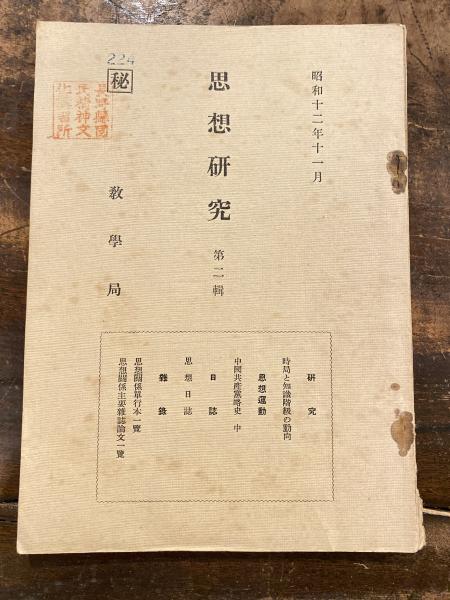 昭和十二年十一月
思想研究 第二輯
224
秘
長野縣國
民精神文
化講習所
教學局
研究
時局と知識階級の動向
思想運動
中國共產黨略史 中
日誌
思想日誌
雜錄
思想關係單行本一覽
思想關係主要雜誌論文一覽